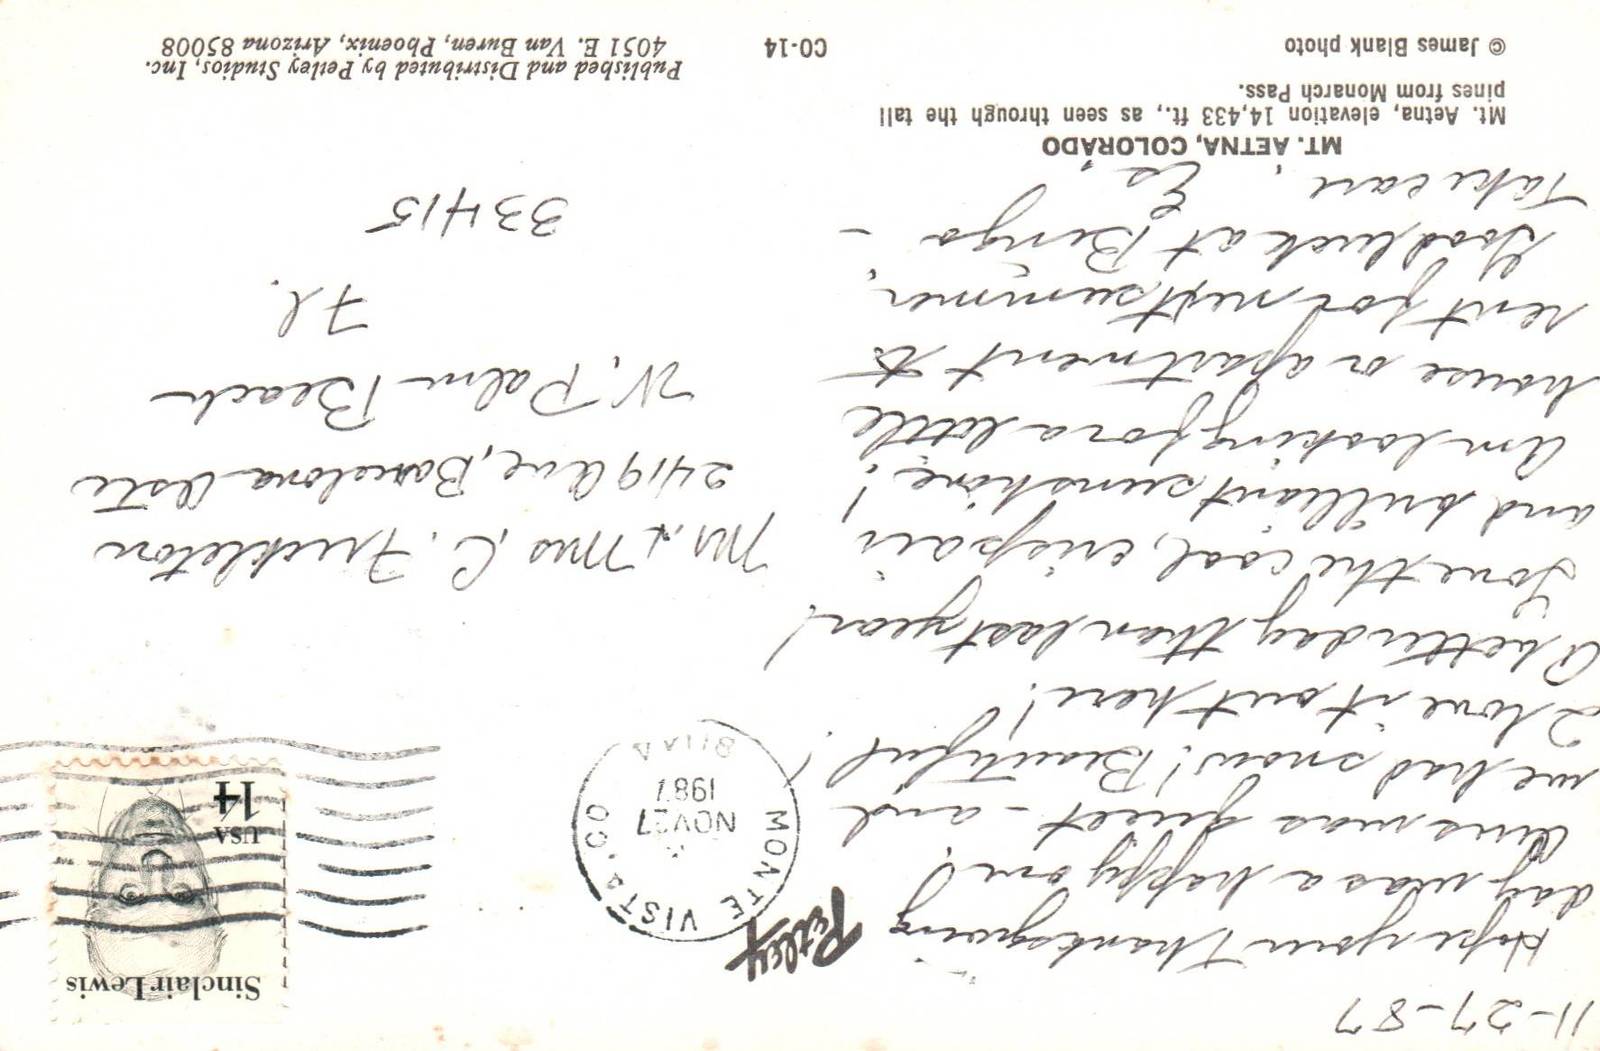 11-27-87
Hope your Thanksgiving
day was a happy one!
Ours was quiet - and
we had snow! Beautiful!
I love it out here!
A better day than last year!
Love the cool, crisp air
and brilliant sunshine!
Am looking for a little
house or apartment to
rent for next summer.
Good luck at Bingo -
Take care,
MT. AETNA, COLORADO
Mt. Aetna, elevation 14,433 ft., as seen through the tall
pines from Monarch Pass.
© James Blank photo
CO-14
Petley
MONTE VISTA, CO
NOV 27
1987
Sinclair Lewis
USA
14
Mr. & Mrs C.
2419 Ave, Barcelona
W. Palm Beach
Fl.
33415
Published and Distributed by Petley Studios, Inc.
4051 E. Van Buren, Phoenix, Arizona 85008